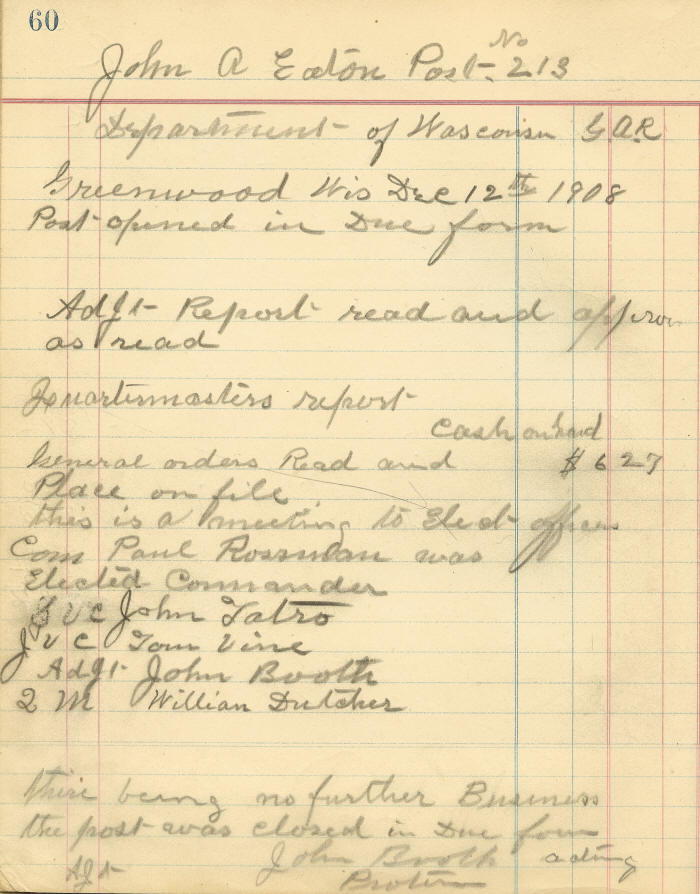 60
John A Eaton Post No 213
Department of Wasconsin G.A.R
Greenwood Wis Dec 12th 1908
Post opened in Due form
AdJt Report read and approv
as read
Quartermasters report
Cash on hand
General orders Read and $ 6 27
Place on file
this is a meeting to Elect officers
Com Paul Rossman was
Elected Commander
S V C John Tatro
J V C Tom Vine
AdJt John Booth
Q M Willian Dutcher
there being no further Business
the post was closed in Due form
John Booth acting
AJt